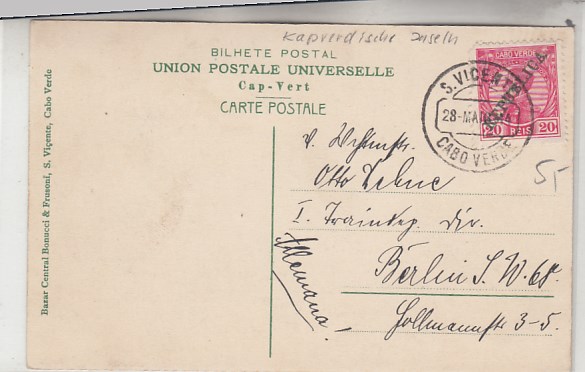 Kapverdische Inseln
BILHETE POSTAL
UNION POSTALE UNIVERSELLE
Cap-Vert
CARTE POSTALE
CABO VERDE
REPUBLICA
20 REIS 20
S. VICENTE
28-MA
CABO VERDE
5,-
Otto
I. Div.
Berlin S. W. 68.
Hollmannstr 3-5.
Allemana!
Bazar Central Bonucci & Frusoni, S. Viçente, Cabo Verde